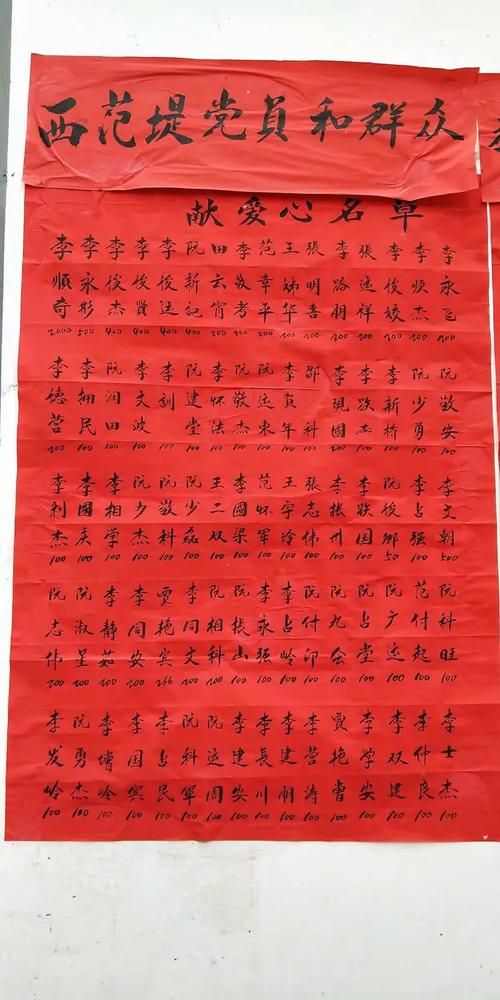 西范堤党員和群众
献爱心名单
李順奇 2000
李永彤 500
李俊杰 400
李俊賢 400
李俊运 400
阮新記 200
田云霄 200
李敬考 200
范章平 200
王娣华 100
張明喜 200
李路明 200
張运祥 200
李俊姣 200
李顺杰 200
李永飞 200
李德营 200
李拥民 100
阮润田 100
李文波 100
李訓 100
阮建堂 100
李怀法 100
阮敬杰 100
阮运东 100
李贺年 100
邵科 100
李現國 200
李跃杰 100
李新桥 100
阮少勇 100
阮敬安 100
李利杰 100
李國庆 100
李相学 100
阮少杰 100
阮敬科 100
阮少磊 100
王二双 100
李國梁 100
范怀軍 100
王宇 100
張志伟 100
李振州 100
李跃国 100
阮俊 50
李占强 100
李文朝 500
阮志伟 200
阮淑星 200
李静茹 200
李同安 200
贾艳宾 266
李同文 100
阮相科 100
阮振山 100
李永强 100
李占岭 100
阮付印 100
阮九会 100
阮占堂 100
阮广运 100
范付起 100
阮科旺 100
李发岭 100
阮勇杰 100
李增岭 100
李国兴 100
李占民 100
阮科軍 100
阮运周 100
李建安 100
李長川 100
李建明 100
李营涛 100
贾艳曹 100
李学安 100
李双建 100
李仲良 100
李士杰 100